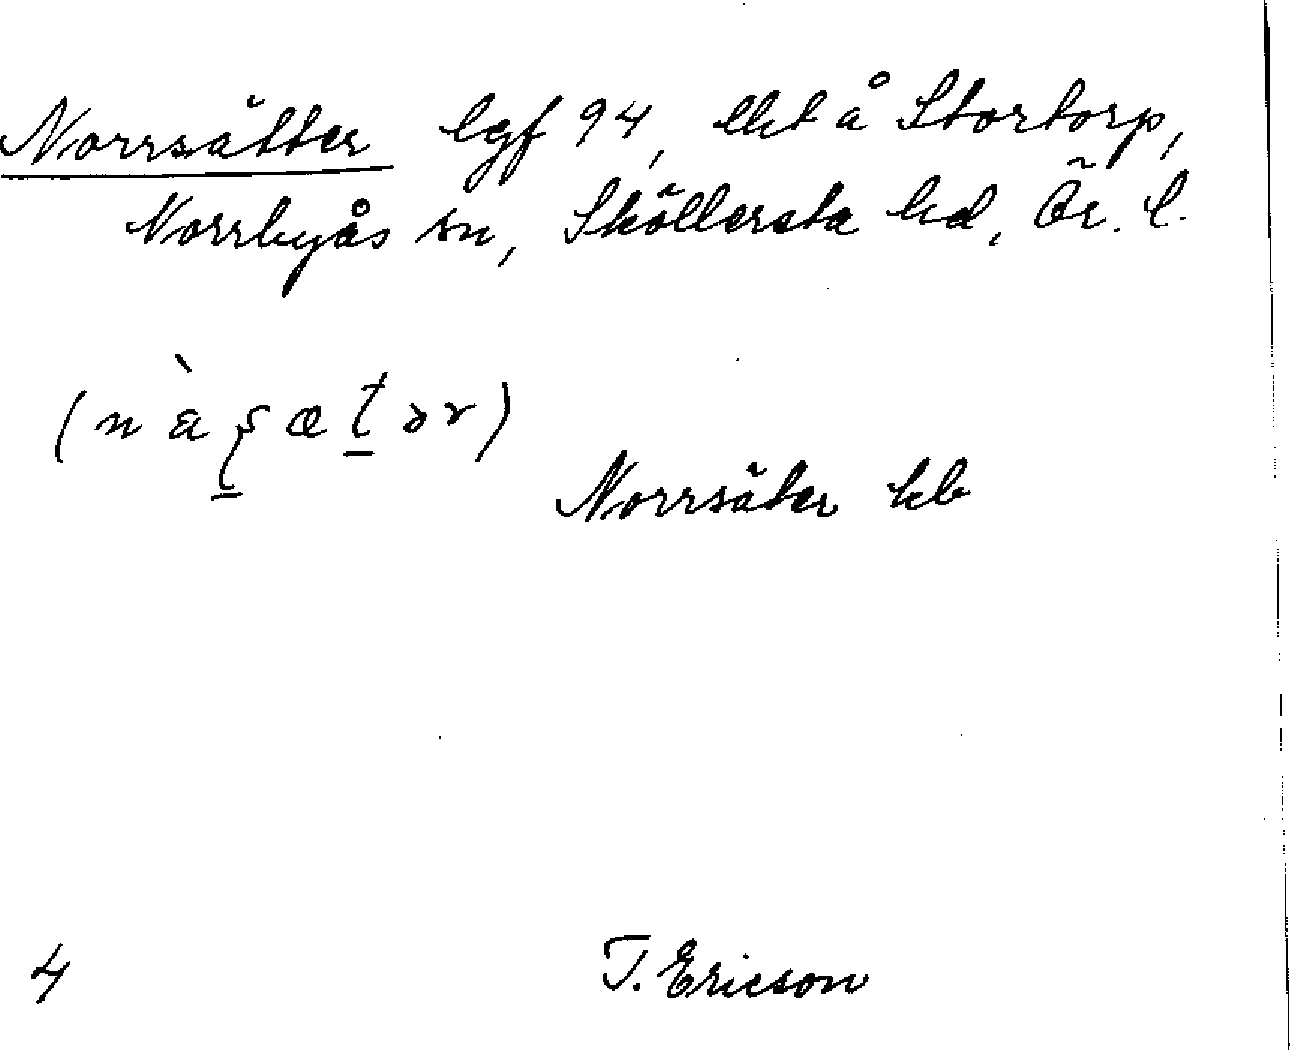 Norrsätter lgf 94, lht å Stortorp,
Norrbyås sn, Sköllersta hd, Ör. l.
Norrsäter kb
4 T. Ericson